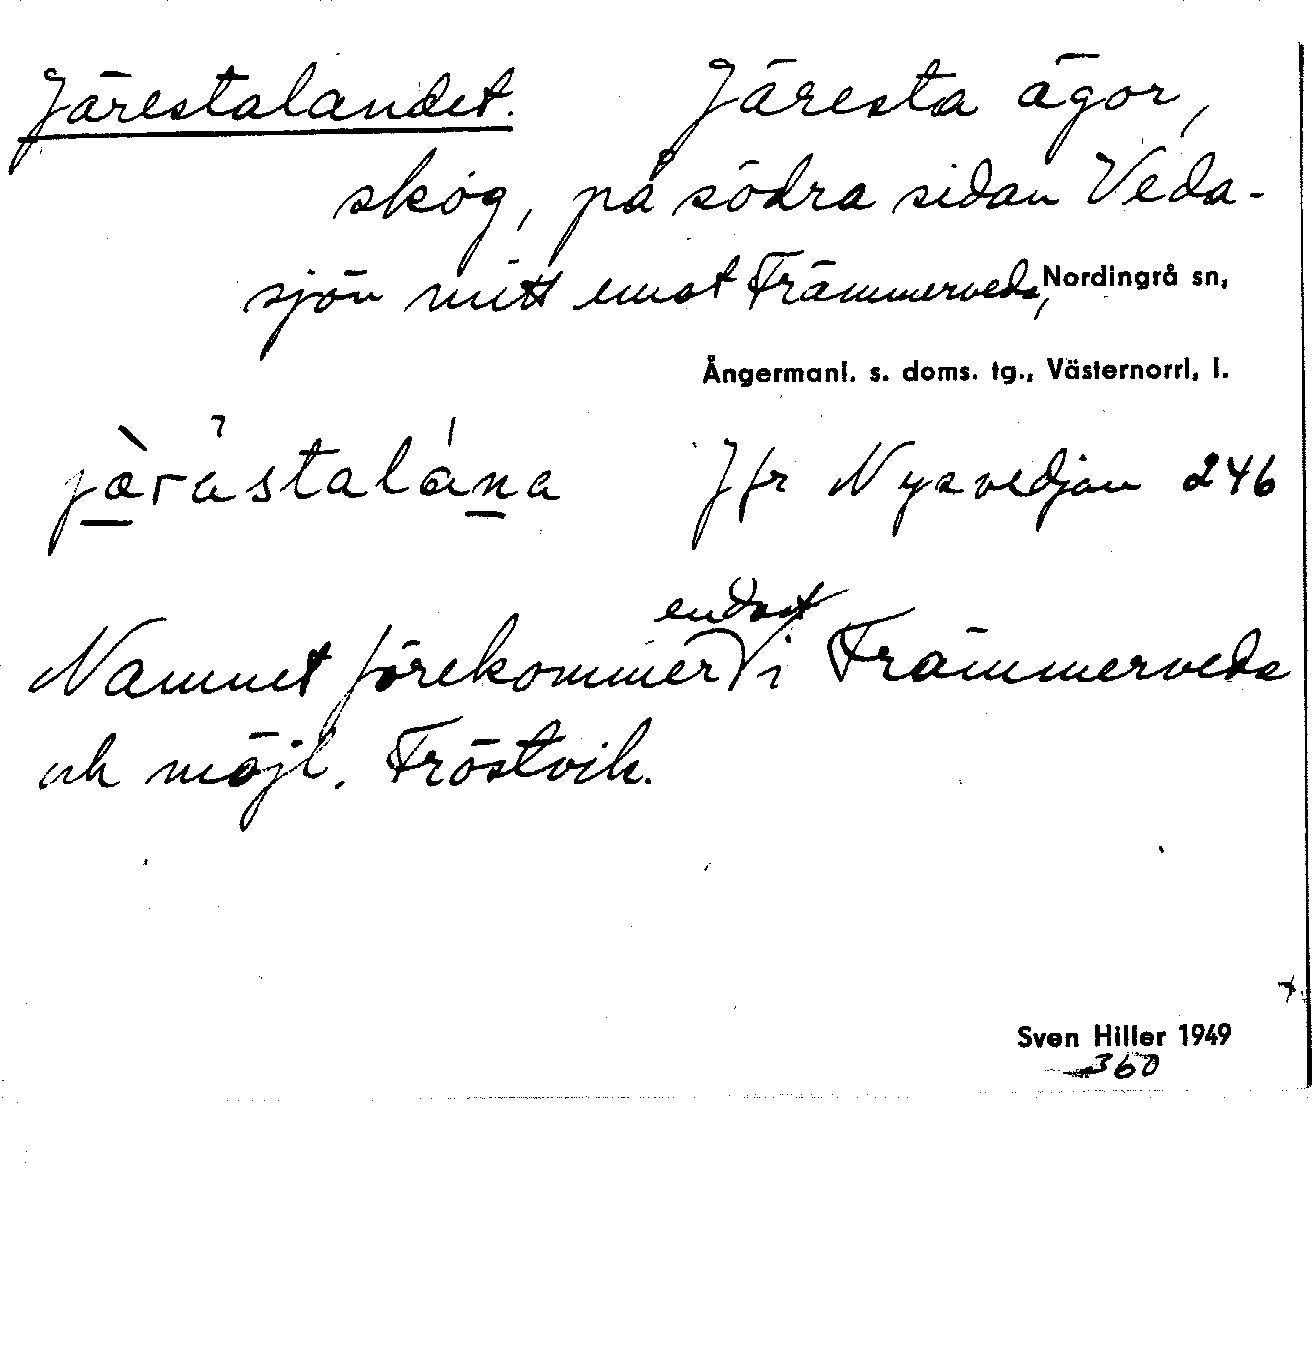 Järestalandet. Järesta ägor,
skog, på södra sidan Veda-
sjön mitt emot Främmerveda, Nordingrå sn,
Ångermanl. s. doms. tg., Västernorrl, l.
jæ̀rästalána Jfr Nysvedjan 246
endast
Namnet förekommer i Främmerveda
och möjl. Fröstvik.
Sven Hiller 1949
360